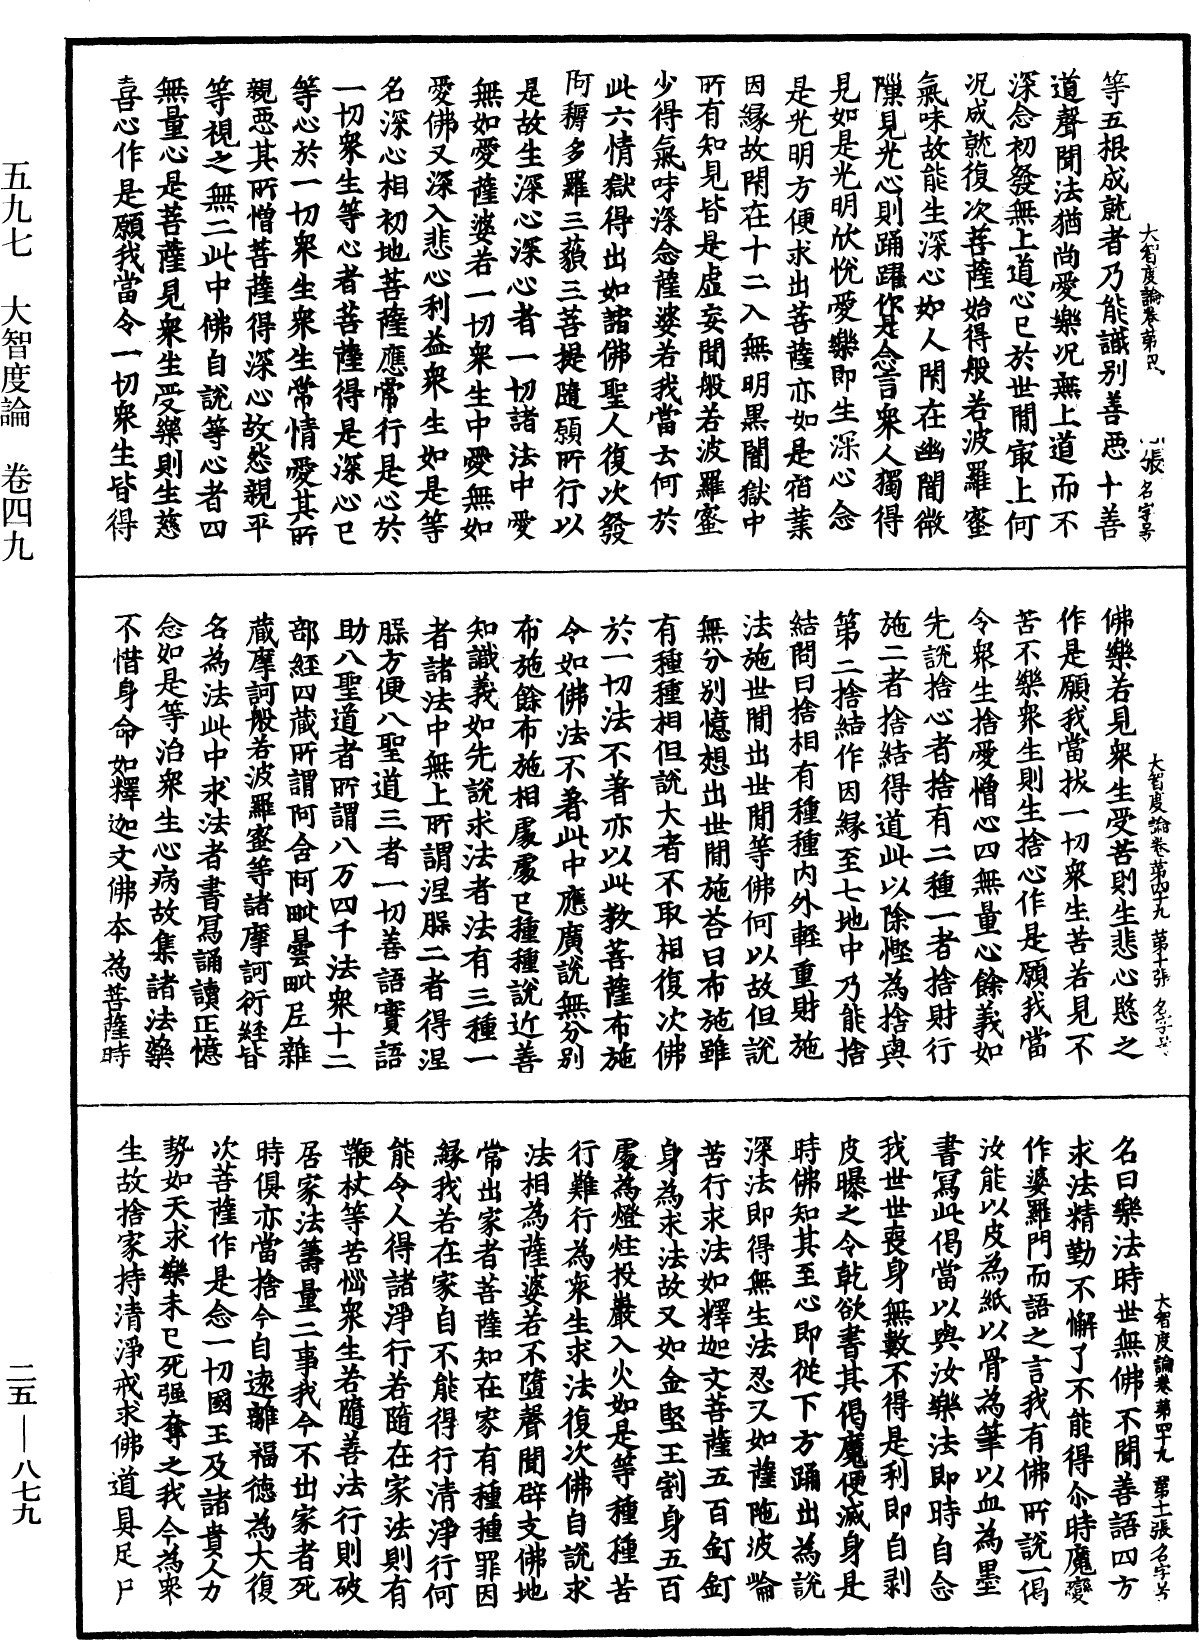 等五根成就者乃能識別善惡十善
道聲聞法猶尚愛樂况無上道而不
深念初發無上道心已於世間㝡上何
况成就復次菩薩始得般若波羅蜜
氣味故能生深心如人閇在幽闇微
隟見光心則踊躍作是念言衆人獨得
見如是光明欣悅愛樂即生深心念
是光明方便求出菩薩亦如是宿業
因縁故閇在十二入無明黒闇獄中
所有知見皆是虛妄聞般若波羅蜜
少得氣味深念薩婆若我當云何於
此六情獄得出如諸佛聖人復次發
阿耨多羅三藐三菩提隨願所行以
是故生深心深心者一切諸法中愛
無如愛薩婆若一切衆生中愛無如
愛佛又深入悲心利益衆生如是等
名深心相初地菩薩應常行是心於
一切衆生等心者菩薩得是深心已
等心於一切衆生衆生常情愛其所
親惡其所憎菩薩得深心故怨親平
等視之無二此中佛自說等心者四
無量心是菩薩見衆生受樂則生慈
喜心作是願我當令一切衆生皆得
大智度論卷第
張 名字号
佛樂若見衆生受苦則生悲心愍之
作是願我當拔一切衆生苦若見不
苦不樂衆生則生捨心作是願我當
令衆生捨愛憎心四無量心餘義如
先說捨心者捨有二種一者捨財行
施二者捨結得道此以除慳為捨與
第二捨結作因縁至七地中乃能捨
結問曰捨相有種種内外輕重財施
法施世間出世間等佛何以故但說
無分別憶想出世間施荅曰布施雖
有種種相但說大者不取相復次佛
於一切法不著亦以此教菩薩布施
令如佛法不著此中應廣說無分別
布施餘布施相處處已種種說近善
知識義如先說求法者法有三種一
者諸法中無上所謂涅槃二者得涅
槃方便八聖道三者一切善語實語
助八聖道者所謂八万四千法衆十二
部經四藏所謂阿含阿毗曇毗尼雜
藏摩訶般若波羅蜜等諸摩訶衍經皆
名為法此中求法者書寫誦讀正憶
念如是等治衆生心病故集諸法藥
不惜身命如釋迦文佛本為菩薩時
大智度論卷第四十九 第十張 名字号
名曰樂法時世無佛不聞善語四方
求法精勤不懈了不能得尒時魔變
作婆羅門而語之言我有佛所說一偈
汝能以皮為紙以骨為筆以血為墨
書寫此偈當以與汝樂法即時自念
我世世喪身無數不得是利即自剥
皮曝之令乾欲書其偈魔便滅身是
時佛知其至心即從下方踊出為說
深法即得無生法忍又如薩陁波崙
苦行求法如釋迦文菩薩五百釘釘
身為求法故又如金堅王割身五百
處為燈炷投巖入火如是等種種苦
行難行為衆生求法復次佛自說求
法相為薩婆若不墮聲聞辟支佛地
常出家者菩薩知在家有種種罪因
縁我若在家自不能得行清淨行何
能令人得諸淨行若隨在家法則有
鞭杖等苦惱衆生若隨善法行則破
居家法籌量二事我今不出家者死
時俱亦當捨今自遠離福德為大復
次菩薩作是念一切國王及諸貴人力
勢如天求樂未已死强奪之我今為衆
生故捨家持清淨戒求佛道具足尸
大智度論卷第四十九 第十一張 名字号
五九七 大智度論 卷四九
二五—八七九